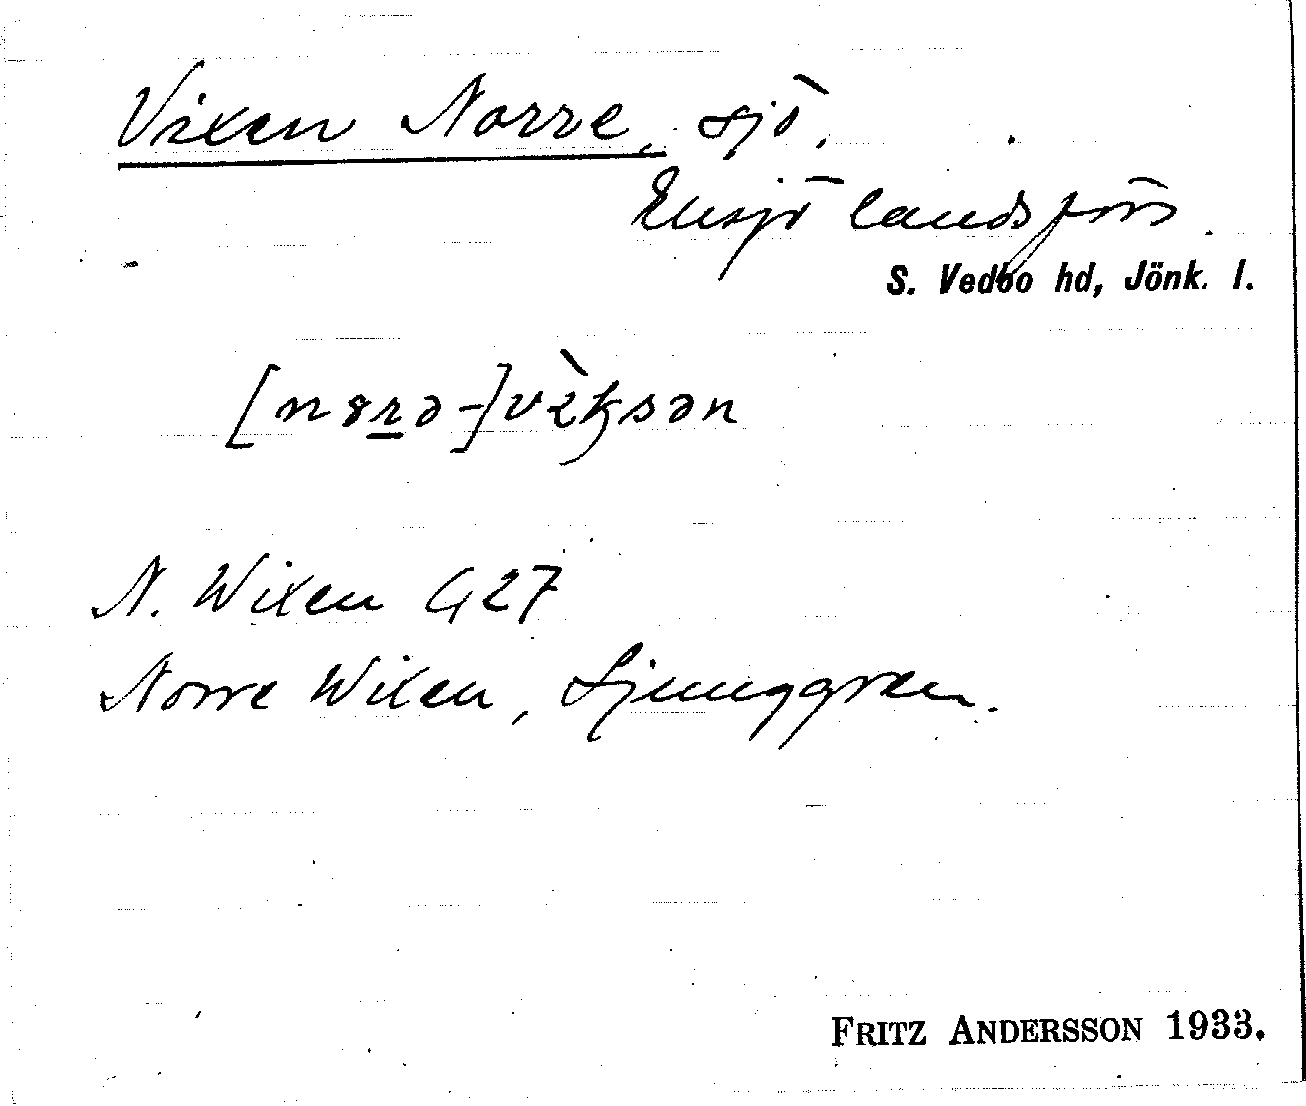 Vixen Norre, sjö.
Ensjö landsförs.
S. Vedbo hd, Jönk. l.
[nɵrə-]vìksən
N. Wixen G27
Norre Wixen, Ljunggren.
FRITZ ANDERSSON 1933.